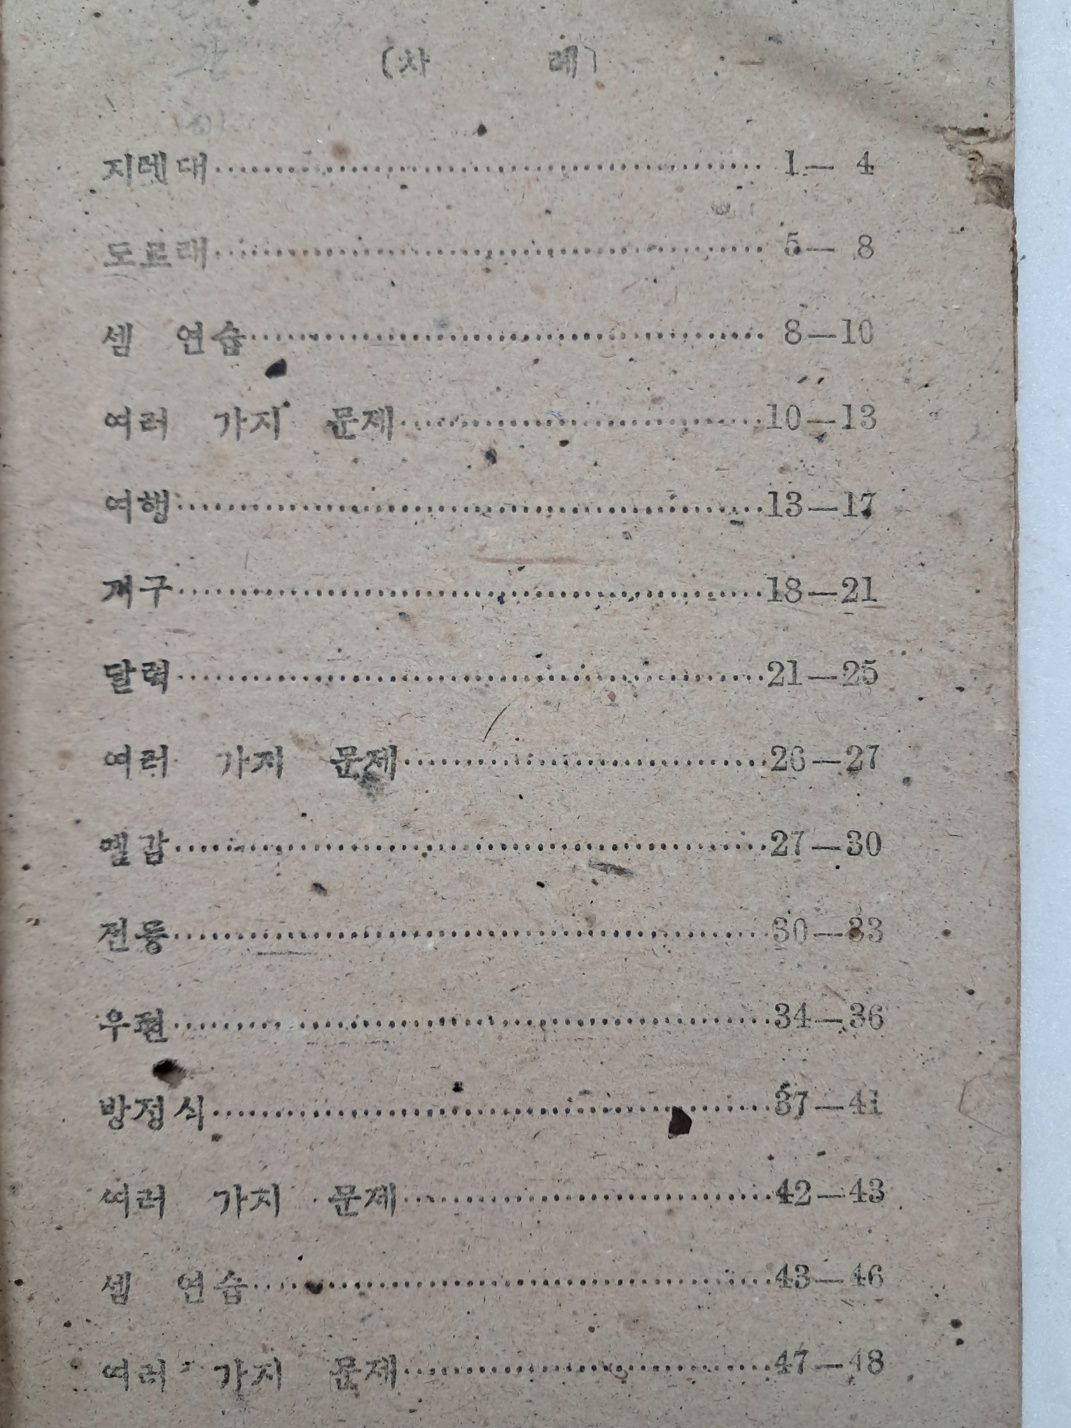 (차 례)
지렌대 1— 4
도르래 5— 8
셈 연습 8—10
여러 가지 문제 10—13
여행 13—17
개구 18—21
달력 21—25
여러 가지 문제 26—27
땔감 27—30
전등 30—33
우편 34—36
방정식 37—41
여러 가지 문제 42—43
셈 연습 43—46
여러 가지 문제 47—48